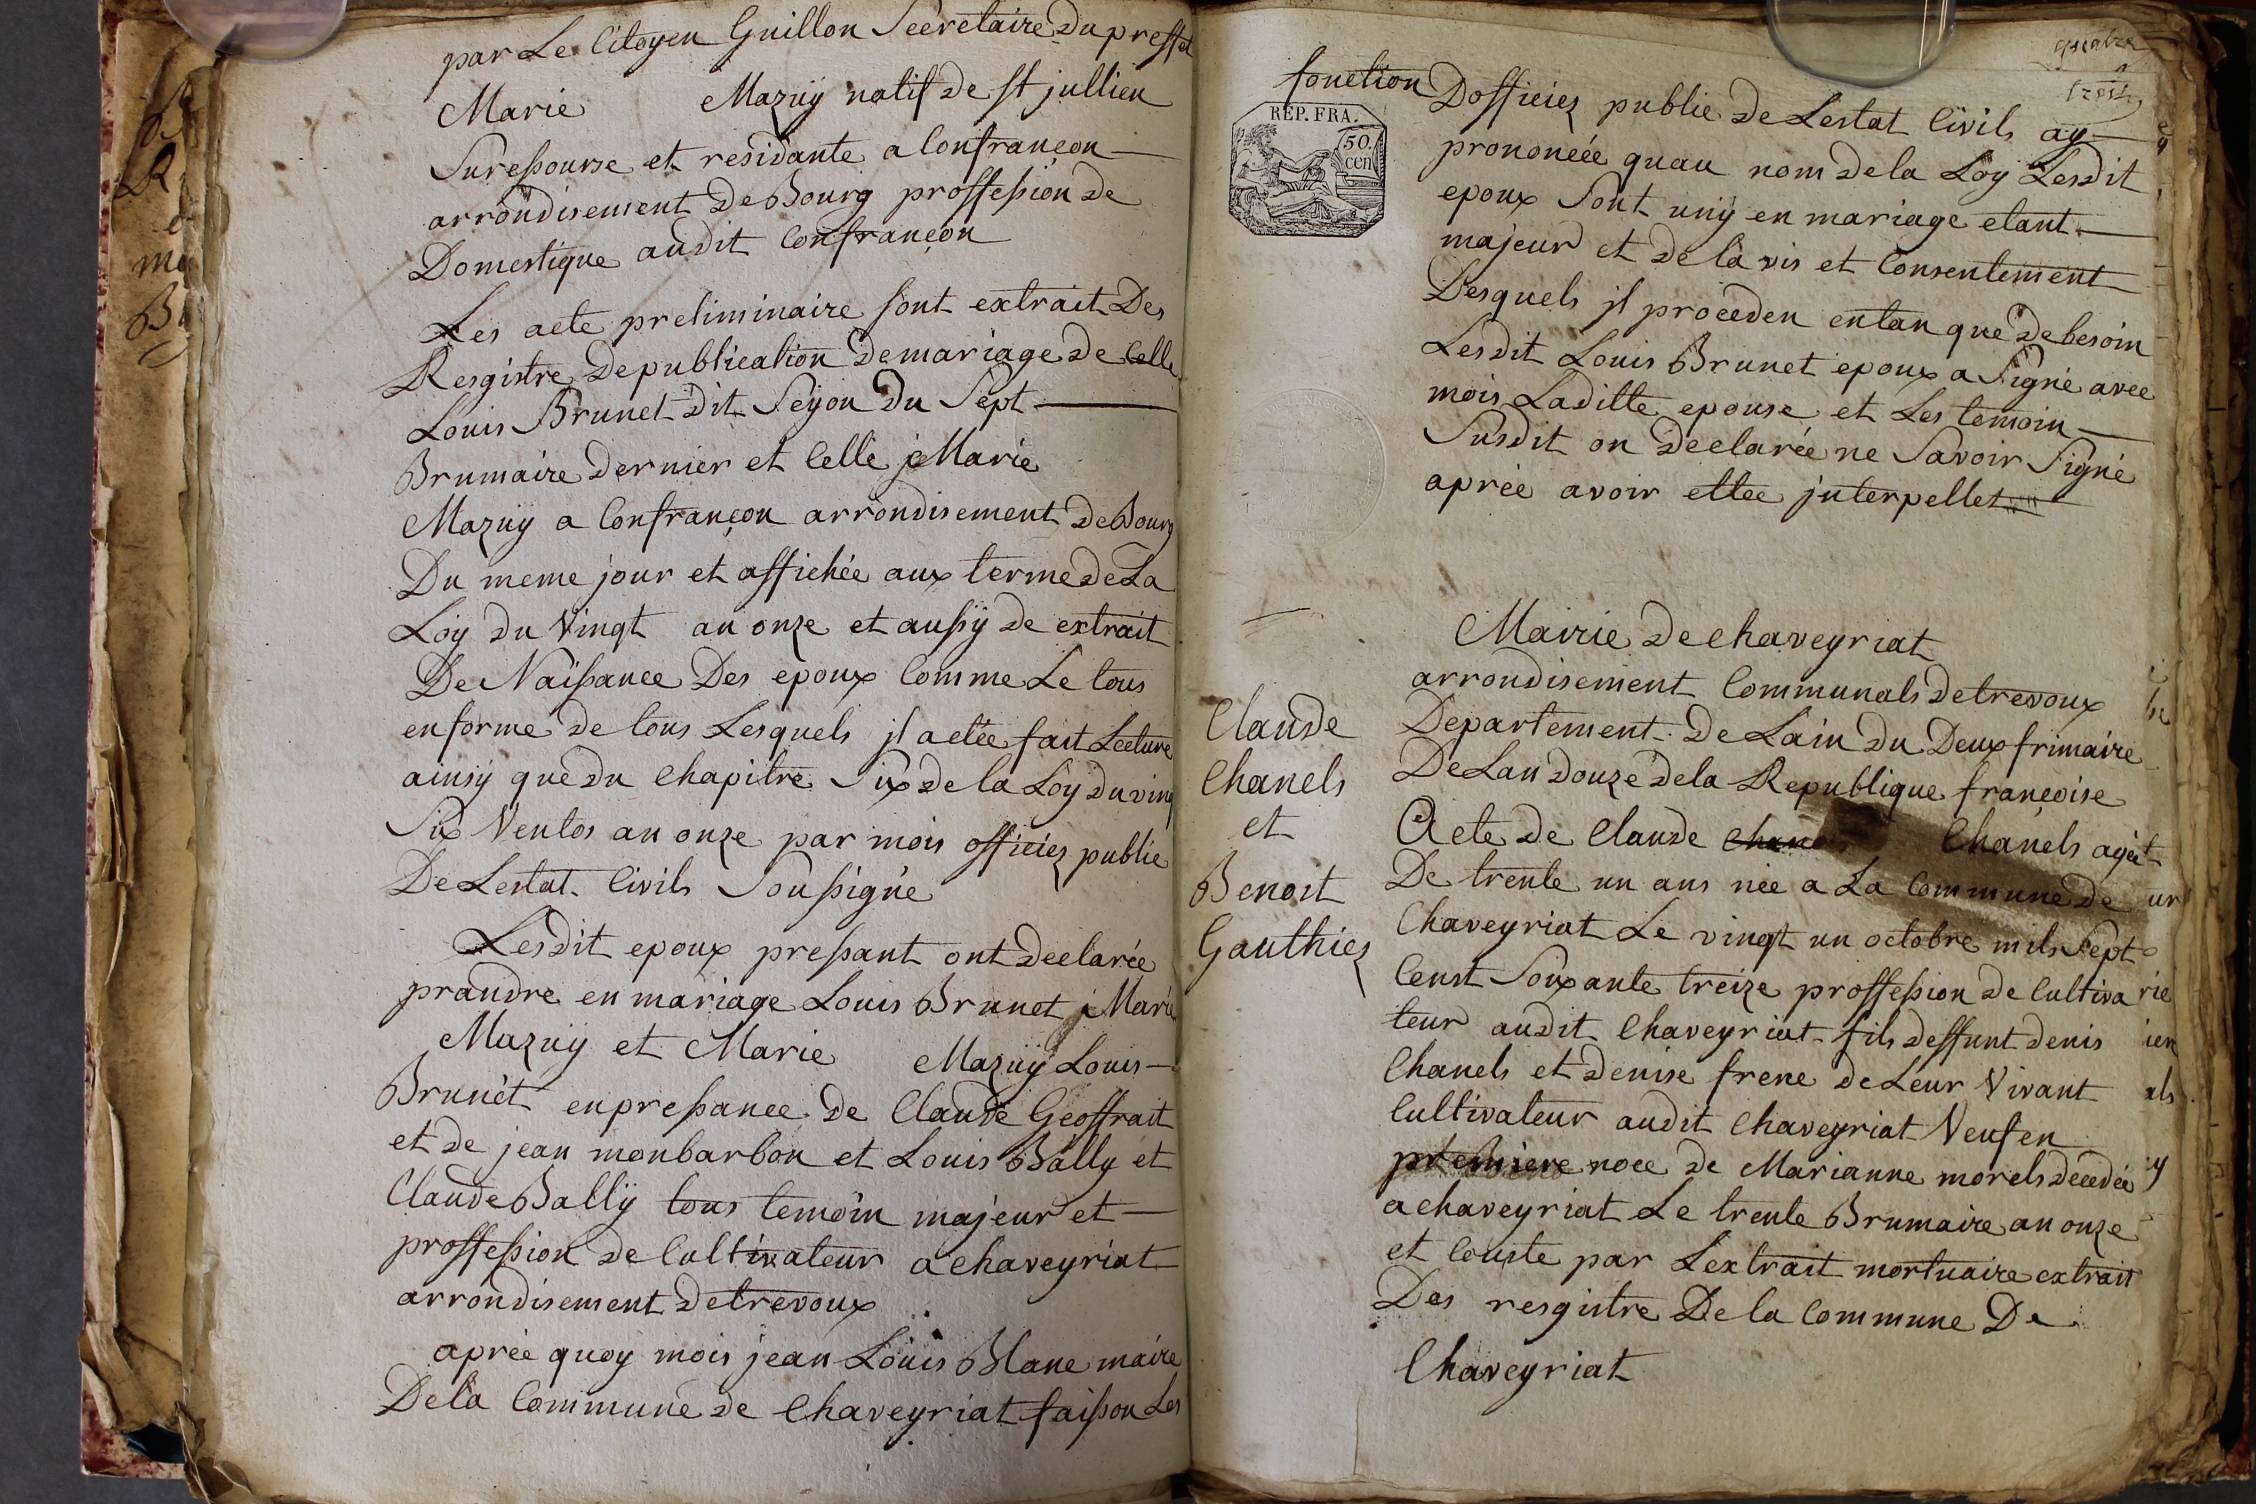 par Le Citoyen Guillon Secretaire Du preffet
Marie Mazuÿ natif de st jullien
Suressourse et residante a Confrançon
arrondisement De Bourg proffession de
Domestique audit Confrançon
Les acte preliminaire sont extrait Des
Resgistre De publication de mariage de Celle
Louis Brunet dit Seyon Du Sept
Brumaire dernier et Celle j Marie
Mazuÿ a Confrançon arrondisement De Bourg
Du meme jour et affichée aux terme De La
Loÿ du Vingt an onze et aussÿ de extrait
De Naissance Des epoux Comme Le tous
en forme de tous Lesquels jl a etée fait Lecture
ainsÿ que du Chapitre Six de la Loÿ du ving
Six Ventos an onze par mois officiez public
De Lestat Civils Soussigné
Lesdit epoux pressant ont declarée
prandre en mariage Louis Brunet j Marie
Mazuÿ et Marie Mazuÿ Louis
Brunet en pressance de Claude Geoffrait
et de jean monbarbon et Louis Bally et
Claude Ballÿ tous temoin majeur et
proffession de Cultivateur a chaveyriat
arrondisement de trevoux
aprée quoy mois jean Louis Blanc maire
De la Commune de Chaveyriat faisson Les
quatre
trois
fonction D officiez public de Lestat Civils ay
prononcée quau nom de la Loÿ Lesdit
epoux Sont unÿ en mariage etant
majeur et de la vis et Consentement
Desquels jl proceden entan que de besoin
Lesdit Louis Brunet epoux a Signé avec
mois Laditte epouse et Les temoin
Susdit on declarée ne Savoir Signé
aprée avoir ettee jnterpellet
REP. FRA.
50.
cen
Mairie de Chaveyriat
arrondisement Communals de trevoux
Departement De Lain du Deux frimaire
De Lan douze de la Republique françoise
Claude
Chanels
et
Benoit
Gauthiez
Acte de Claude Chanels Chanels agét
De trente un ans née a La Commune de
Chaveyriat Le vingt un octobre mils Sept
Censt Soixante treize proffession de Cultiva
teur audit Chaveyriat fils deffunt denis
Chanels et denise frene de Leur Vivant
Cultivateur audit Chaveyriat Veuf en
premiere noce de Marianne morels decedée
a chaveyriat Le trente Brumaire an onze
et Conste par Lextrait mortuaire extrait
Des resgistre De la Commune De
Chaveyriat